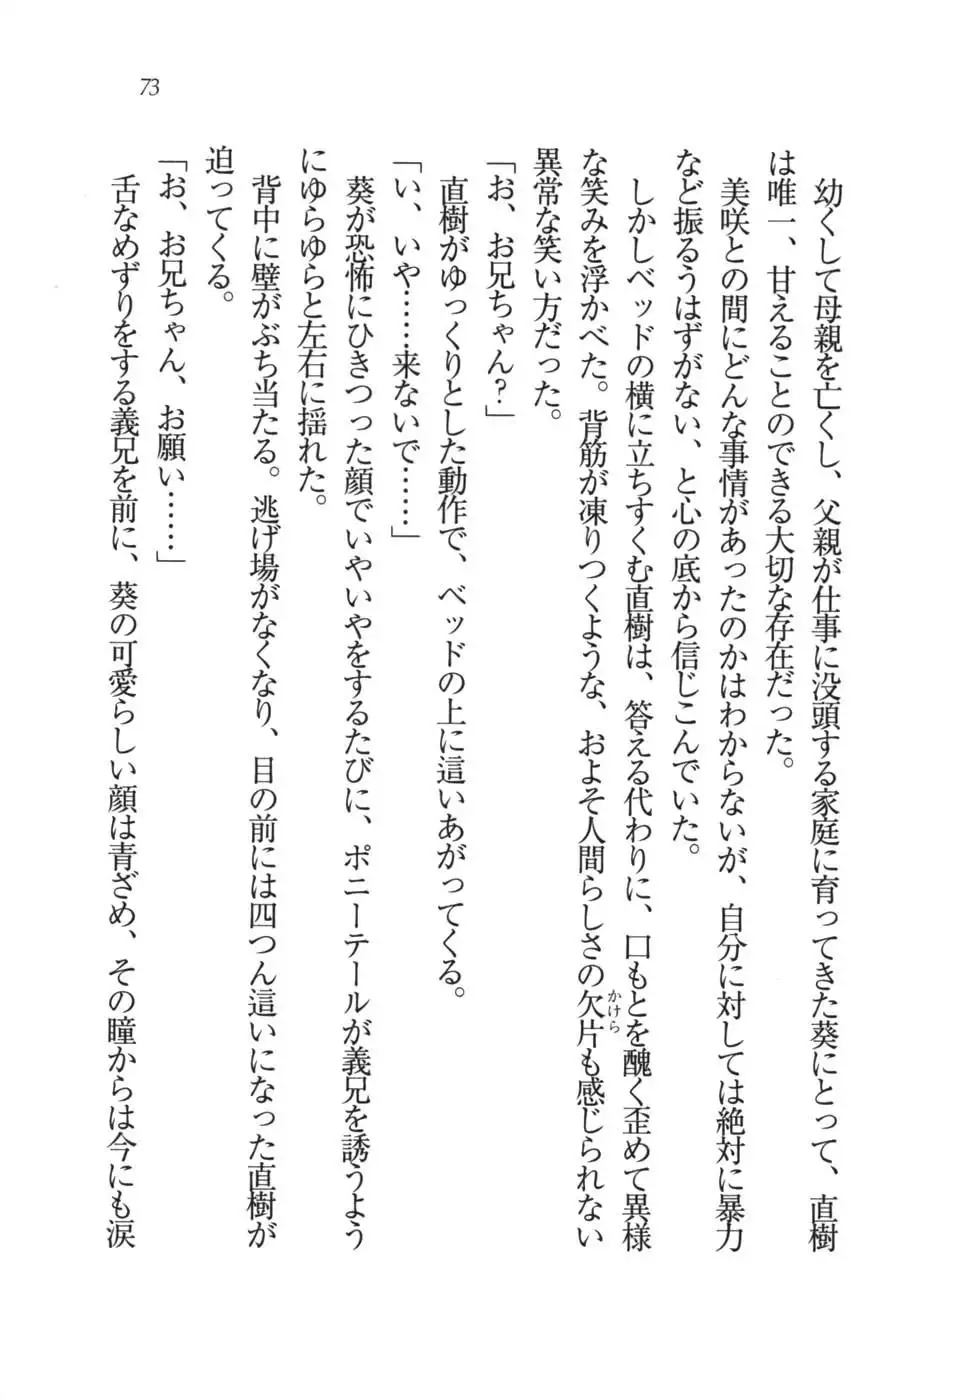 73
幼くして母親を亡くし、父親が仕事に没頭する家庭に育ってきた葵にとって、直樹
は唯一、甘えることのできる大切な存在だった。
美咲との間にどんな事情があったのかはわからないが、自分に対しては絶対に暴力
など振るうはずがない、と心の底から信じこんでいた。
しかしベッドの横に立ちすくむ直樹は、答える代わりに、口もとを醜く歪めて異様
な笑みを浮かべた。背筋が凍りつくような、およそ人間らしさの欠片も感じられない
かけら
異常な笑い方だった。
「お、お兄ちゃん?」
直樹がゆっくりとした動作で、ベッドの上に這いあがってくる。
「い、いや……来ないで……」
葵が恐怖にひきつった顔でいやいやをするたびに、ポニーテールが義兄を誘うよう
にゆらゆらと左右に揺れた。
背中に壁がぶち当たる。逃げ場がなくなり、目の前には四つん這いになった直樹が
迫ってくる。
「お、お兄ちゃん、お願い……」
舌なめずりをする義兄を前に、葵の可愛らしい顔は青ざめ、その瞳からは今にも涙